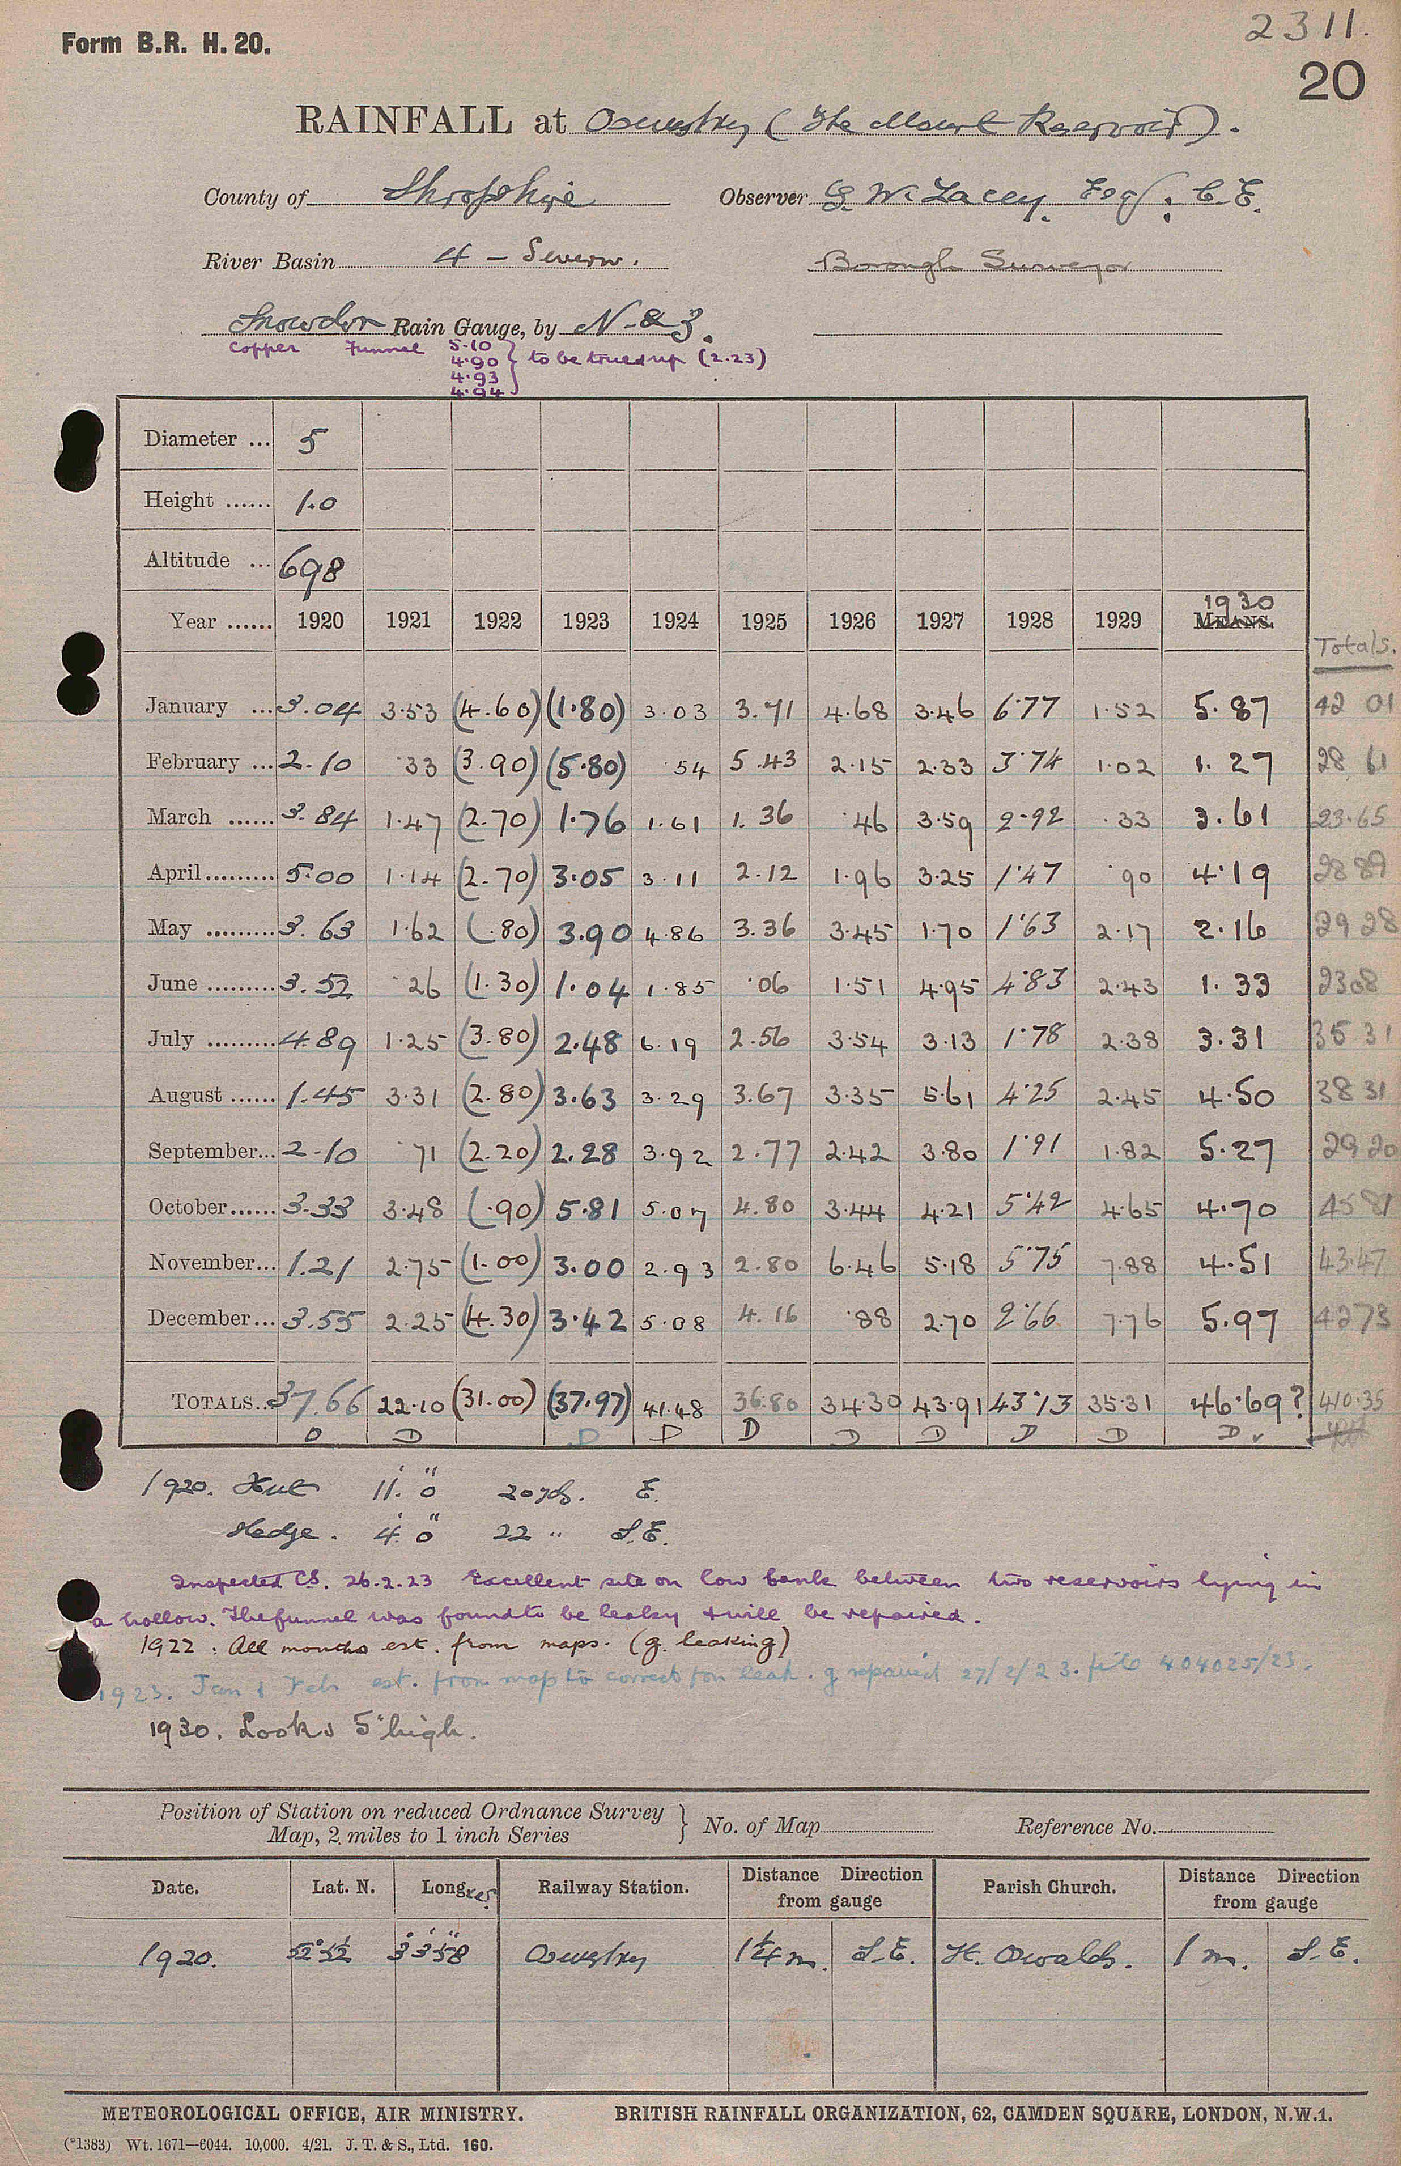 Form B.R. H. 20.
2311.
20
RAINFALL at Oswestry (The Mount Reservoir).
County of Shropshire Observer G. W. Lacey, Esq., C.E.
River Basin 4 - Severn. Borough Surveyor
Snowdon Rain Gauge, by N & Z.
Copper Funnel 5.10
4.90 } to be trued up (2.23)
4.93
4.94
Diameter ... 5
Height ...... 1.0
Altitude ... 698
Year ...... 1920 1921 1922 1923 1924 1925 1926 1927 1928 1929 1930 MEANS. Totals.
January ... 3.04 3.53 (4.60) (1.80) 3.03 3.71 4.68 3.46 6.77 1.52 5.87 42 01
February ... 2.10 .33 (3.90) (5.80) .54 5.43 2.15 2.33 3.74 1.02 1.27 28 61
March ...... 3.84 1.47 (2.70) 1.76 1.61 1.36 .46 3.59 2.92 .33 3.61 23.65
April......... 5.00 1.14 (2.70) 3.05 3.11 2.12 1.96 3.25 1.47 .90 4.19 28 89
May ......... 3.63 1.62 (.80) 3.90 4.86 3.36 3.45 1.70 1.63 2.17 2.16 29 28
June ......... 3.52 .26 (1.30) 1.04 1.85 .06 1.51 4.95 4.83 2.43 1.33 23 08
July ......... 4.89 1.25 (3.80) 2.48 6.19 2.56 3.54 3.13 1.78 2.38 3.31 35 31
August ...... 1.45 3.31 (2.80) 3.63 3.29 3.67 3.35 5.61 4.25 2.45 4.50 38 31
September... 2.10 .71 (2.20) 2.28 3.92 2.77 2.42 3.80 1.91 1.82 5.27 29 20
October...... 3.33 3.48 (.90) 5.81 5.07 4.80 3.44 4.21 5.42 4.65 4.70 45 81
November... 1.21 2.75 (1.00) 3.00 2.93 2.80 6.46 5.18 5.75 7.88 4.51 43.47
December... 3.55 2.25 (4.30) 3.42 5.08 4.16 .88 2.70 2.66 7.76 5.97 42 73
TOTALS... 37.66 22.10 (31.00) (37.97) 41.48 36.80 34.30 43.91 43.13 35.31 46.69? 410.35
D D D D D D D D D D
1920. Hut 11' 0" 20 yds. E.
Hedge. 4' 0" 22 " S.E.
Inspected CS. 26.2.23 Excellent site on low bank between two reservoirs lying in
a hollow. The funnel was found to be leaky & will be repaired.
1922. All months est. from maps. (g. leaking)
1923. Jan & Feb est. from map to correct for leak. g repaired 27/2/23. file 404025/23.
1930. Looks 5" high.
Position of Station on reduced Ordnance Survey
Map, 2 miles to 1 inch Series } No. of Map Reference No.
Date. Lat. N. Long Railway Station. Distance Direction from gauge Parish Church. Distance Direction from gauge
1920. 52° 52' 3° 3' 58" Oswestry 1¼ m. S.E. St. Oswalds. 1 m. S.E.
METEOROLOGICAL OFFICE, AIR MINISTRY. BRITISH RAINFALL ORGANIZATION, 62, CAMDEN SQUARE, LONDON, N.W.1.
(*1383) Wt. 1671—6044. 10,000. 4/21. J. T. & S., Ltd. 160.